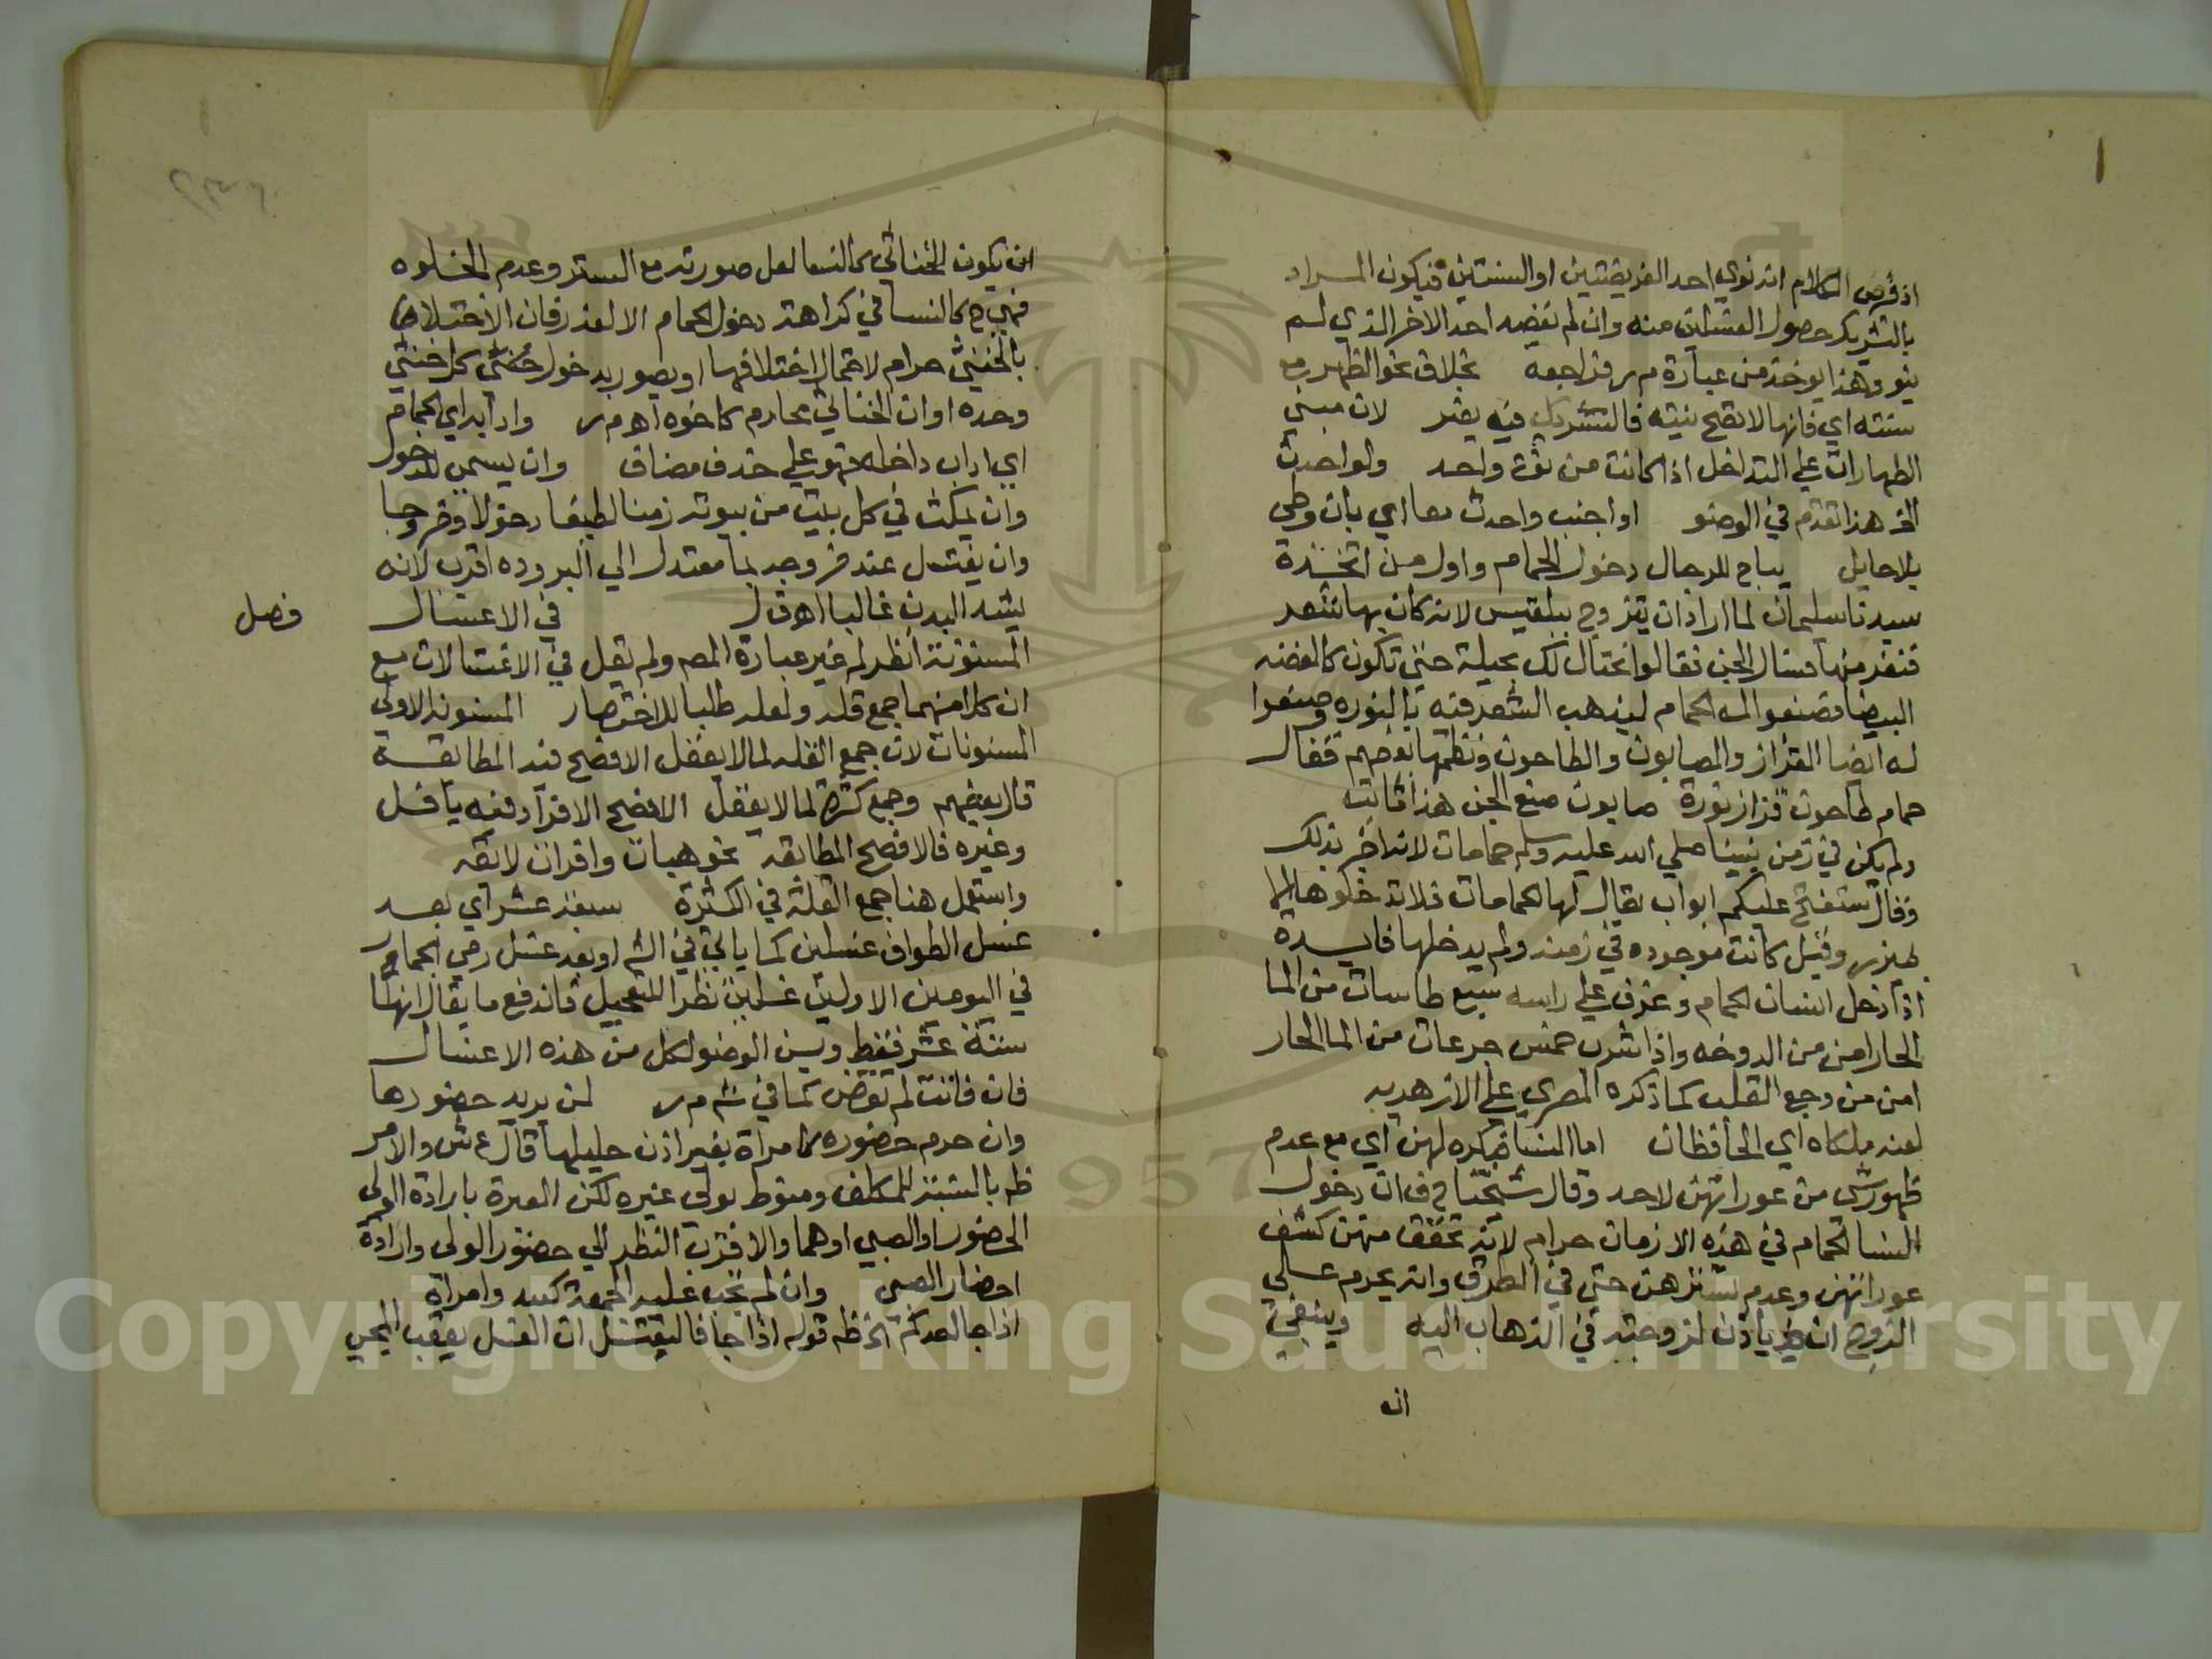 اذ فرض الكلام انه نوي احد الفريضتين او السنتين فيكون المراد
بالتشريك حصول الغسلين منه وان لم تفضه احد الاخر الذي لم
ينو وهذا يوخذ من عبارة م ر فراجعه بخلاف نحو الظهر مع
سنته اي فانها لا تصح بنيته فالتشريك فيه يضر لان مبني
الطهارات علي التداخل اذا كانت من نوع واحد ولو احدث
الخ هذا تقدم في الوضو او اجنب واحدث معا اي بان وطي
بلا حايل يباح للرجال دخول الحمام واول من اتخذه
سيدنا سليمان لما اراد ان يتزوج ببلقيس لانه كان بها شعر
فنفر منها فسال الجن فقالوا نحتال لك بحيلة حتي تكون كالفضه
البيضا فصنعوا له الحمام ليذهب الشعر فيه بالنوره وصنعوا
له ايضا القزاز والصابون والطاحون ونظمها بعضهم فقال
حمام طاحون قزاز نورة صابون صنع الجن هذا ثابت
ولم يكن في زمن نبينا صلي الله عليه وسلم حمامات لانه اخبر بذلك
وقال ستفتح عليكم ابواب يقال لها الحمامات فلا تدخلوها الا
بميزر وقيل كانت موجوده في زمنه ولم يدخلها فايدة
اذا دخل انسان الحمام وغرف علي راسه سبع طاسات من الما
الحار امن من الدوخه واذا شرب خمس جرعات من الما الحار
امن من وجع القلب كما ذكره المصري علي الازهديه
لعنه ملكاه اي الحافظان اما النسا فيكره لهن اي مع عدم
ظهور شي من عوراتهن لاحد وقال شيخنا ح ف ان دخول
النسا الحمام في هذه الازمان حرام لانه تحقق منهن كشف
عوراتهن وعدم تسترهن حتي في الطرق وانه يحرم علي
الزوج ان ياذن لزوجته في الذهاب اليه وينبغي
ان
ان يكون الخناثي كالنسا لعل صورته مع الستر وعدم الخلوه
فهي ح كالنسا في كراهة دخول الحمام الا لعذر فان الاختلاط
بالخنثي حرام لاحتمال اختلافهما او يصور بدخول خنثي كل خنثي
وحده او ان الخناثي محارم كاخوه اه م ر وادابه اي الحمام
اي اداب داخله فهو علي حذف مضاف وان يسمي للدخول
وان يمكث في كل بيت من بيوته زمنا لطيفا دخولا وخروجا
وان يغتسل عند خروجه بما معتدل الي البروده اقرب لانه
يشد البدن غالبا اه ق ل في الاغتسال
فصل
المسنونة انظر لم غير عبارة المص ولم يقل في الاغتسالات مع
ان كلا منهما جمع قله ولعله طلبا للاختصار المسنونه الاولي
المسنونات لان جمع القله لما لا يعقل الافصح فيه المطابقة
قال بعضهم وجمع كثرة لما لا يعقل الافصح الافراد فيه يا فل
وغيره فالافصح المطابقه نحو هبات وافرات لائقه
واستعمل هنا جمع القلة في الكثرة سبعة عشر اي بعد
غسل الطواف غسلين كما ياتي في الش او بعد غسل رمي الجمار
في اليومين الاولين غسلين نظرا للتعجيل فاندفع ما يقال انها
ستة عشر فقط ويسن الوضو لكل من هذه الاغسال
فان فاتت لم تقض كما في ش م ر لمن يريد حضورها
وان حرم حضوره كامراة بغير اذن حليلها قال ع ش والامر
ظه بالنسبة للمكلف ومنوط بولي غيره لكن العبرة بارادة الولي
الحضور او الصبي او هما والاقرب النظر الي حضور الولي وارادة
احضار الصبي وان لم تجب عليه الجمعة كعبد وامراة
اذا جا احدكم الخ ظه قوله اذا جا فاليغتسل ان الغسل يعقب المجي
Copyright © King Saud University
957